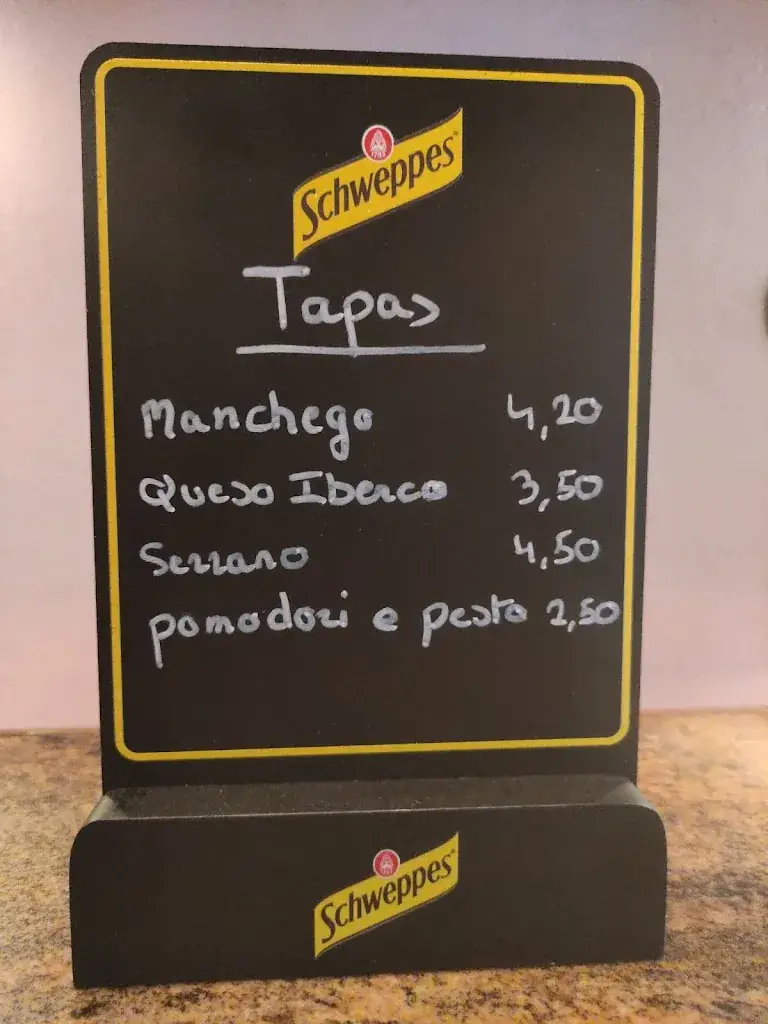 Schweppes
Tapas
Manchego 4,20
Queso Iberco 3,50
Serrano 4,50
pomodori e pesto 2,50
Schweppes